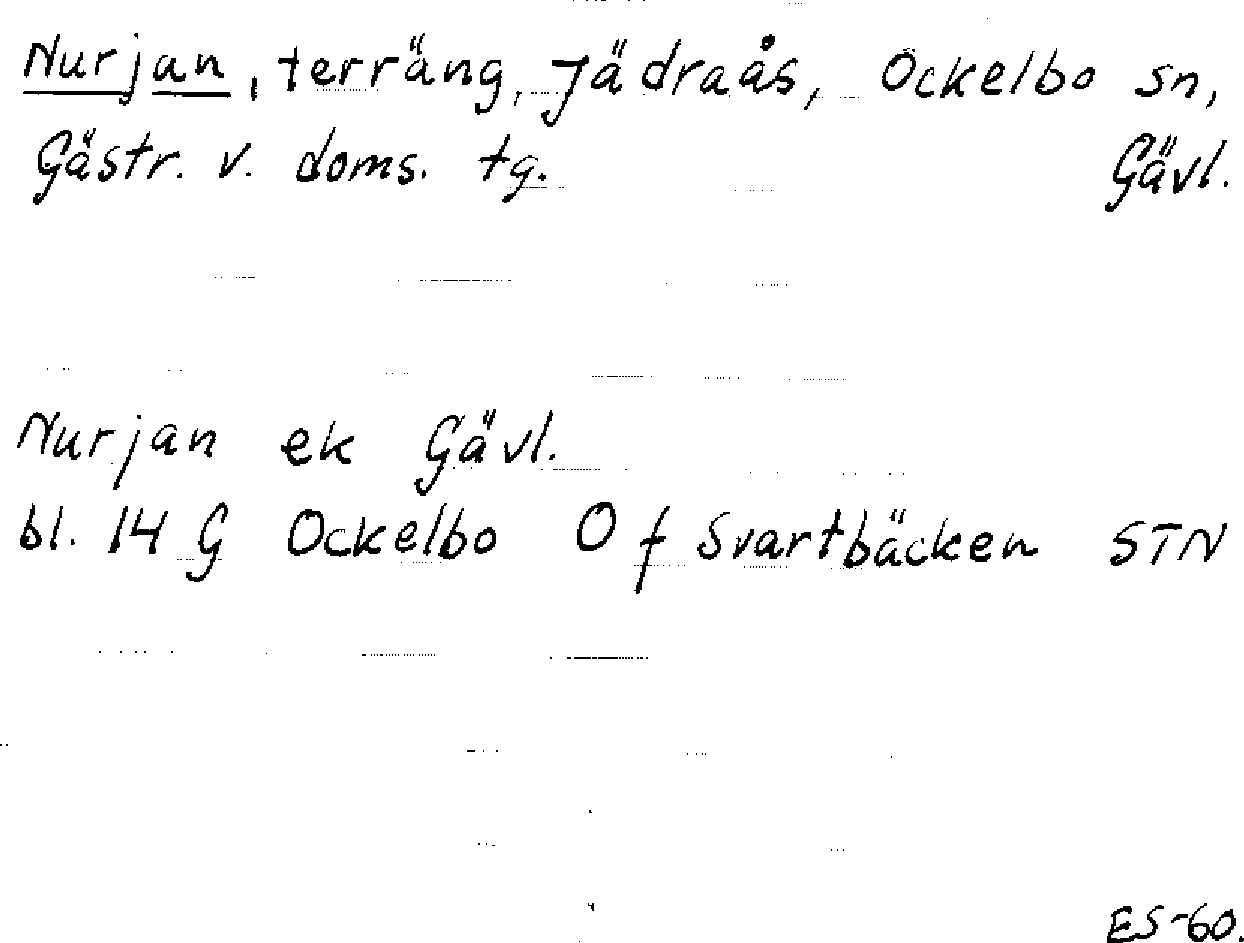 Nurjan, terräng, Jädraås, Ockelbo sn,
Gästr. v. doms. tg. Gävl.
Nurjan ek Gävl.
bl. 14 G Ockelbo O f Svartbäcken STN
ES-60.